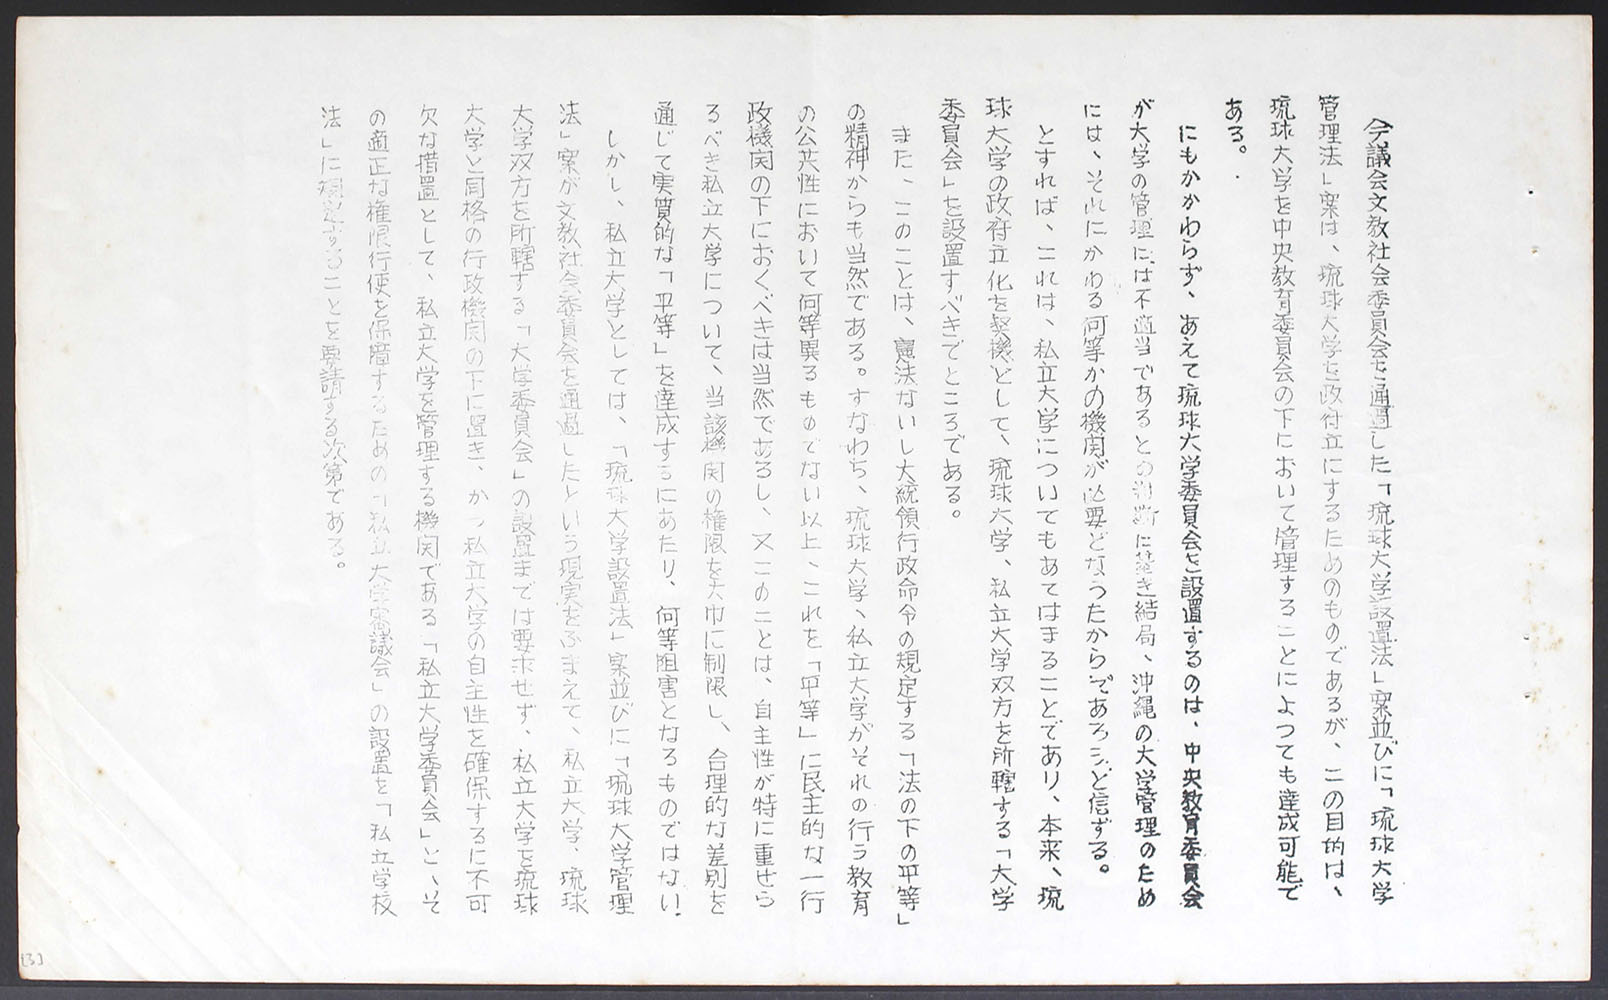 今議会文教社会委員会を通過した「琉球大学設置法」案並びに「琉球大学
管理法」案は、琉球大学を政府立にするためのものであるが、この目的は、
琉球大学を中央教育委員会の下において管理することによつても達成可能で
ある。
にもかかわらず、あえて琉球大学委員会を設置するのは、中央教育委員会
が大学の管理には不適当であるとの判断に基き結局、沖縄の大学管理のため
には、それにかわる何等かの機関が必要となつたからであろうと信ずる。
とすれば、これは、私立大学についてもあてはまることであり、本来、琉
球大学の政府立化を契機として、琉球大学、私立大学双方を所轄する「大学
委員会」を設置すべきでところである。
また、このことは、憲法ないし大統領行政命令の規定する「法の下の平等」
の精神からも当然である。すなわち、琉球大学、私立大学がそれの行う教育
の公共性において何等異るものでない以上、これを「平等」に民主的な一行
政機関の下におくべきは当然であるし、又このことは、自主性が特に重せら
るべき私立大学について、当該機関の権限を大巾に制限し、合理的な差別を
通じて実質的な「平等」を達成するにあたり、何等阻害となるものではない
しかし、私立大学としては、「琉球大学設置法」案並びに「琉球大学管理
法」案が文教社会委員会を通過したという現実をふまえて、私立大学、琉球
大学双方を所轄する「大学委員会」の設置までは要求せず、私立大学を琉球
大学と同格の行政機関の下に置き、かつ私立大学の自主性を確保するに不可
欠な措置として、私立大学を管理する機関である「私立大学委員会」と、そ
の適正な権限行使を保障するための「私立大学審議会」の設置を「私立学校
法」に規定することを要請する次第である。
[3]